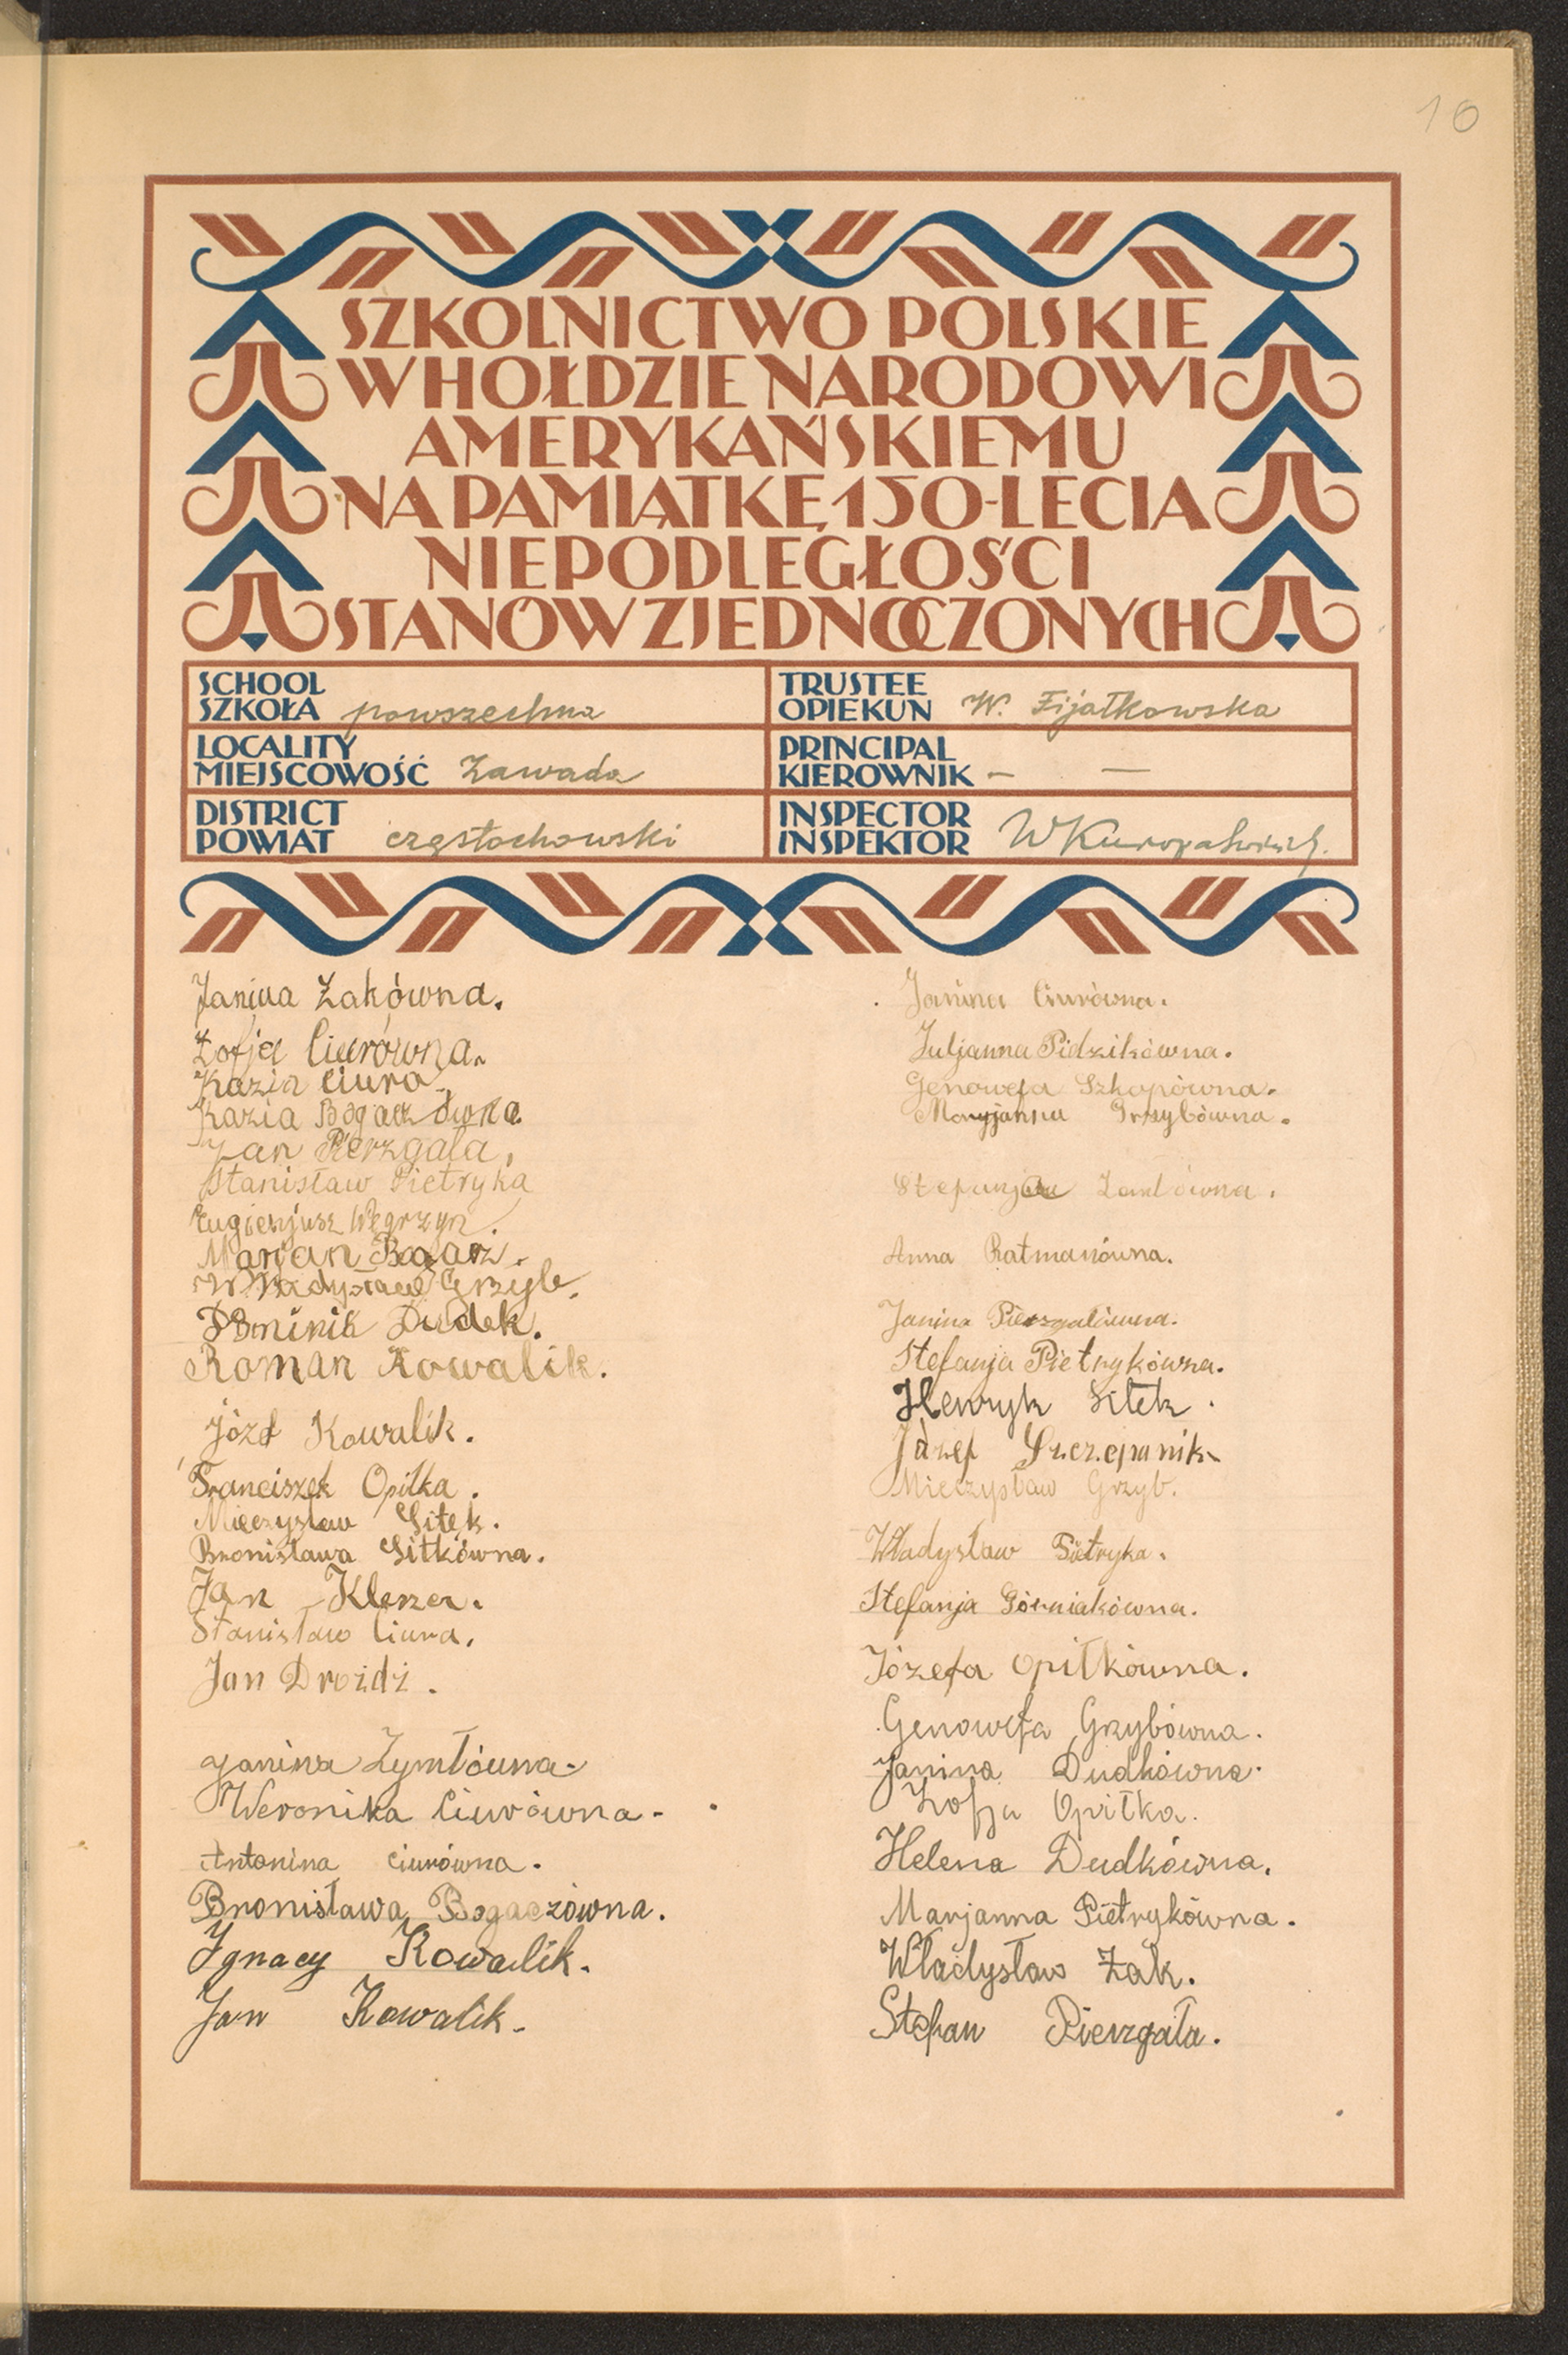 10
SZKOLNICTWO POLSKIE
W HOŁDZIE NARODOWI
AMERYKAŃSKIEMU
NA PAMIĄTKĘ 150-LECIA
NIEPODLEGŁOŚCI
STANÓW ZJEDNOCZONYCH
SCHOOL
SZKOŁA powszechna
TRUSTEE
OPIEKUN W. Fijałkowska
LOCALITY
MIEJSCOWOŚĆ Zawada
PRINCIPAL
KIEROWNIK — —
DISTRICT
POWIAT częstochowski
INSPECTOR
INSPEKTOR
Janina Żakówna.
Zofja Ciurówna.
Kazia Ciura
Kazia Bogaczówna
Jan Pierzgała,
Stanisław Pietryka
Eugienjusz Węgrzyn.
Marjan Bogacz.
Władysław Grzyb.
Dominik Dudek.
Roman Kowalik.
Józef Kowalik.
Franciszek Opiłka.
Mieczysław Sitek.
Bronisława Sitkówna.
Jan Klekza.
Stanisław Ciura.
Jan Drożdż.
Janina Zymłówna.
Weronika Ciurówna.
Antonina Ciurówna.
Bronisława Bogaczówna.
Ignacy Kowalik.
Jan Kowalik.
Janina Ciurówna.
Juljanna Pidzikówna.
Genowefa Szkopówna.
Maryjanna Grzybówna.
Anna Ratmanówna.
Janina Pierzgalówna.
Stefanja Pietrykówna.
Henryk Sitek.
Józef Szczepanik
Mieczysław Grzyb.
Władysław Pietryka.
Stefanja Górniakówna.
Józefa Opiłkówna.
Genowefa Grzybówna.
Janina Dudkówna.
Zofja Opiłka.
Helena Dudkówna.
Marjanna Pietrykówna.
Władysław Żak.
Stefan Pierzgała.